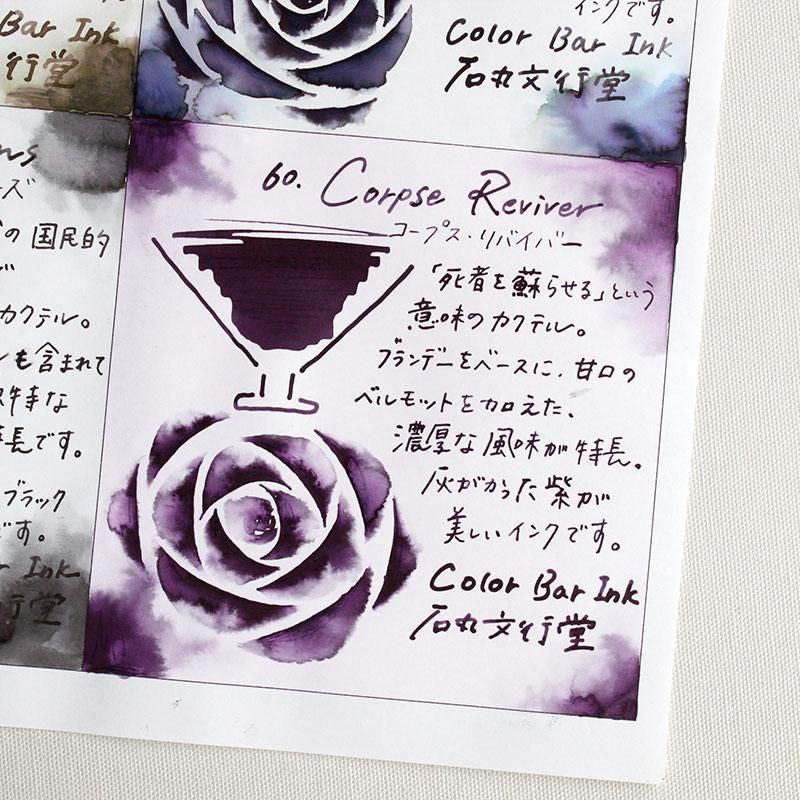 Bar Ink
行堂
インクです。
Color Bar Ink
石丸文行堂
ーズ
の 国民的
カクテル。
も含まれて
特長です。
ブラック
です。
Ink
行堂
60. Corpse Reviver
コープス・リバイバー
「死者を蘇らせる」という
意味のカクテル。
ブランデーをベースに、甘口の
ベルモットを加えた、
濃厚な風味が特長。
灰がかった紫が
美しいインクです。
Color Bar Ink
石丸文行堂